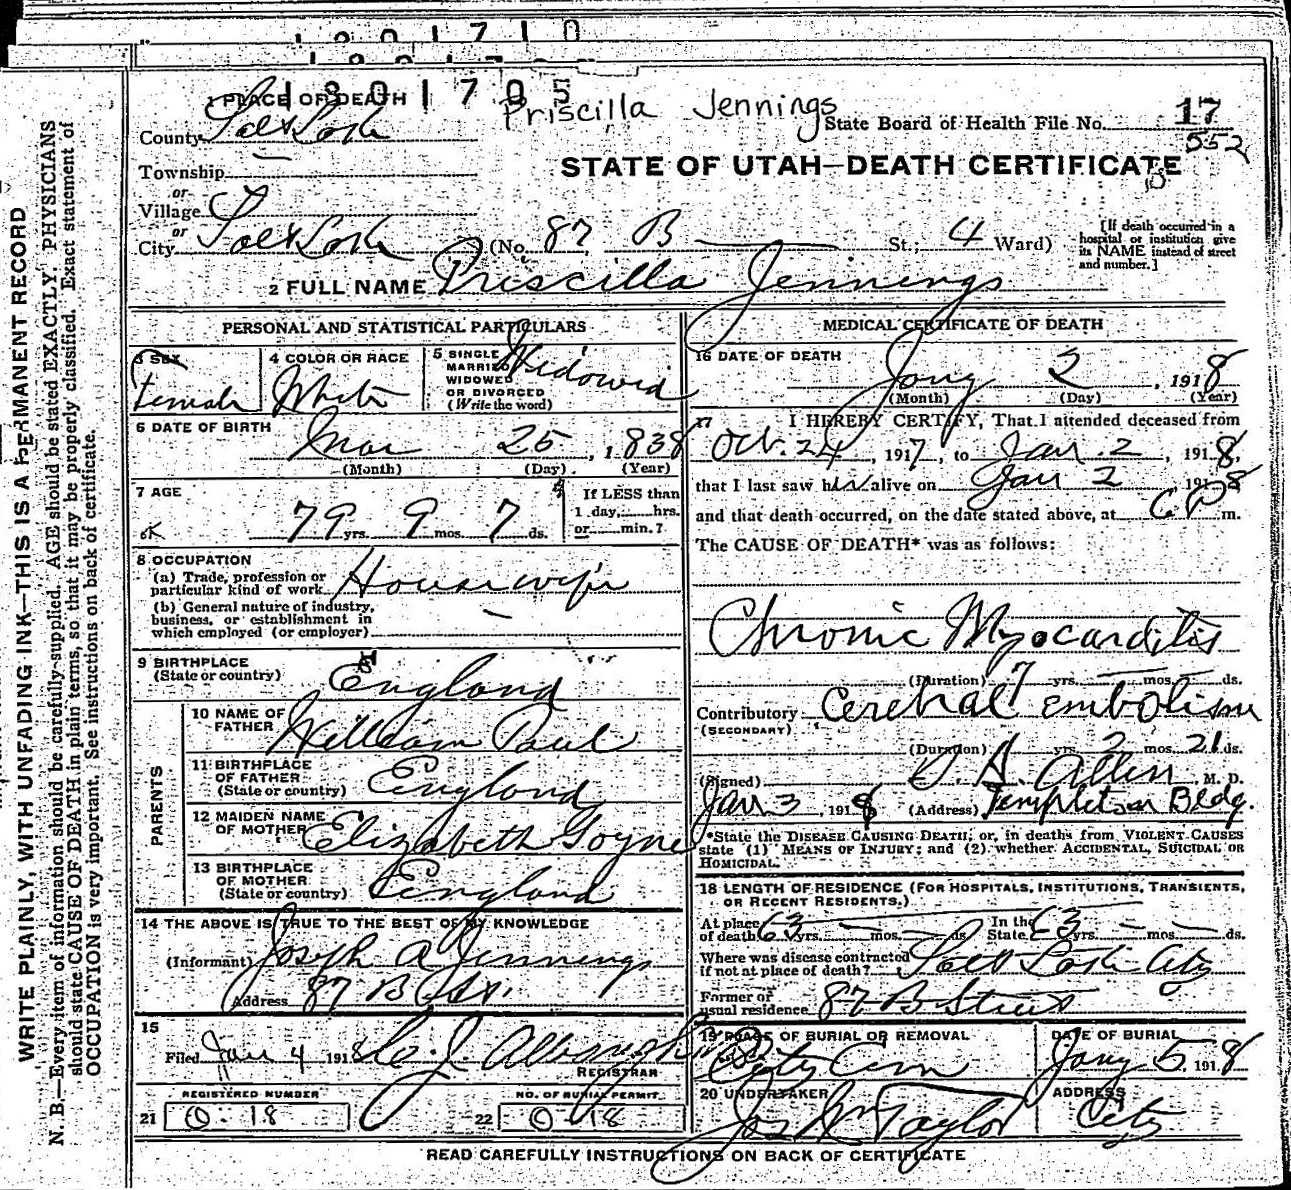 1801710
1801705
1 PLACE OF DEATH
Priscilla Jennings
County Salt Lake
State Board of Health File No. 17
552
STATE OF UTAH—DEATH CERTIFICATE
Township —
or
Village
or
City Salt Lake (No. 87 B St.; 4 Ward)
[If death occurred in a hospital or institution give its NAME instead of street and number.]
2 FULL NAME Priscilla Jennings
PERSONAL AND STATISTICAL PARTICULARS
3 SEX Female
4 COLOR OR RACE White
5 SINGLE MARRIED WIDOWED OR DIVORCED (Write the word) Widowed
6 DATE OF BIRTH Mar 25, 1838
(Month) (Day) (Year)
7 AGE
79 yrs. 9 mos. 7 ds.
If LESS than 1 day, hrs. or min.?
8 OCCUPATION
(a) Trade, profession or particular kind of work Housewife
(b) General nature of industry, business, or establishment in which employed (or employer) —
9 BIRTHPLACE (State or country) England
PARENTS
10 NAME OF FATHER William Paul
11 BIRTHPLACE OF FATHER (State or country) England
12 MAIDEN NAME OF MOTHER Elizabeth Goyne
13 BIRTHPLACE OF MOTHER (State or country) England
14 THE ABOVE IS TRUE TO THE BEST OF MY KNOWLEDGE
(Informant) Joseph A Jennings
Address 87 B St.
15
Filed Jan 4 1918
REGISTRAR
REGISTERED NUMBER
21 0-18
NO. OF BURIAL PERMIT
22 0-18
MEDICAL CERTIFICATE OF DEATH
16 DATE OF DEATH
Jany 2, 1918
(Month) (Day) (Year)
17 I HEREBY CERTIFY, That I attended deceased from
Oct. 24, 1917, to Jan. 2, 1918,
that I last saw her alive on Jan 2 1918
and that death occurred, on the date stated above, at 6 P m.
The CAUSE OF DEATH* was as follows:
Chronic Myocarditis
(Duration) 7 yrs. — mos. ds.
Contributory Cerebral embolism
(SECONDARY)
(Duration) yrs. 2 mos. 21 ds.
(Signed) Allen, M. D.
Jan 3, 1918 (Address) Templeton Bldg.
*State the DISEASE CAUSING DEATH; or, in deaths from VIOLENT CAUSES
state (1) MEANS OF INJURY; and (2) whether ACCIDENTAL, SUICIDAL OR
HOMICIDAL.
18 LENGTH OF RESIDENCE (FOR HOSPITALS, INSTITUTIONS, TRANSIENTS, OR RECENT RESIDENTS.)
At place of death 63 yrs. — mos. — ds. In the State 63 yrs. — mos. — ds.
Where was disease contracted if not at place of death? Salt Lake City
Former or usual residence 87 B Street
19 PLACE OF BURIAL OR REMOVAL City Cem
DATE OF BURIAL Jany 5. 1918
20 UNDERTAKER Jos Wm Taylor
ADDRESS City
READ CAREFULLY INSTRUCTIONS ON BACK OF CERTIFICATE
WRITE PLAINLY, WITH UNFADING INK—THIS IS A PERMANENT RECORD
N. B.—Every item of information should be carefully supplied. AGE should be stated EXACTLY. PHYSICIANS
should state CAUSE OF DEATH in plain terms, so that it may be properly classified. Exact statement of
OCCUPATION is very important. See instructions on back of certificate.